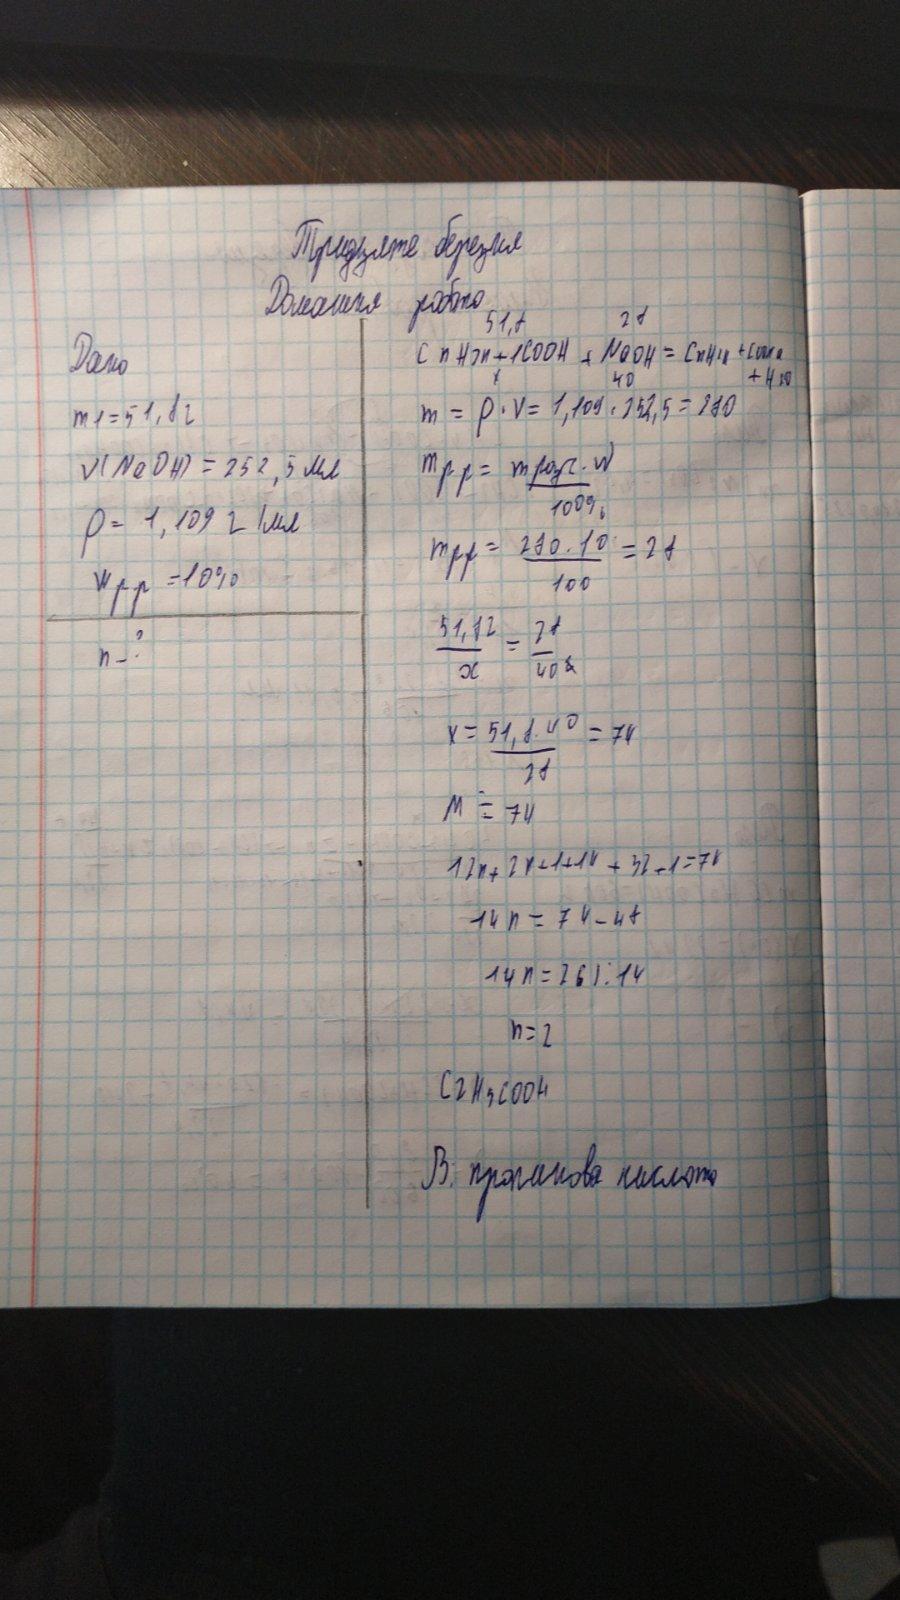 Тридцяте березня
Домашня робота
Дано
m1=51,8г
V(NaOH) = 252,5 мл
ρ= 1,109 г/мл
Wрр =10%
n-?
51,8 28
CnH2n+1COOH + NaOH = CnH2n+1COONa + H2O
x 40
m = ρ·V= 1,109·252,5=280
mрр= mрозч·W
100%
mрр= 280·10 =28
100
51,82 = 28
x 40
x= 51,8·40 = 74
28
M = 74
12n+2n+1+12+32+1=74
14n=74-48
14n=26):14
n=2
C2H5COOH
В: пропанова кислота